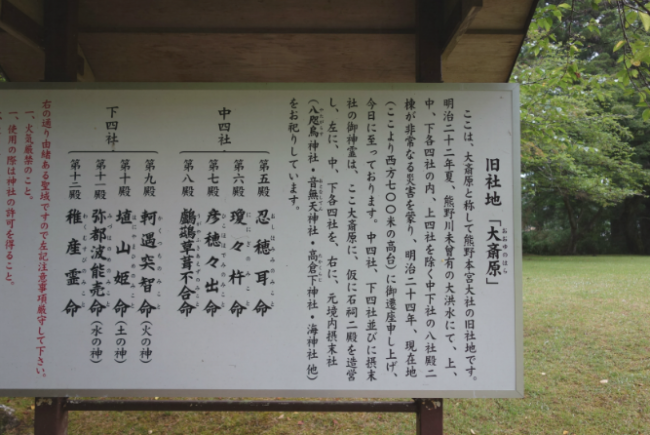 旧社地「大斎原」
おおゆのはら
ここは、大斎原と称して熊野本宮大社の旧社地です。
明治二十二年夏、熊野川未曾有の大洪水にて、上、
中、下各四社の内、上四社を除く中下社の八社殿二
棟が非常なる災害を蒙り、明治二十四年、現在地
(ここより西方七〇〇米の高台)に御遷座申し上げ、
今日に至っております。中四社、下四社並びに摂末
社の御神霊は、ここ大斎原に、仮に石祠二殿を造営
し、左に、中、下各四社を、右に、元境内摂末社
(八咫烏神社・音無天神社・高倉下神社・海神社他)
をお祀りしています。
中四社
第五殿 忍穂耳命
第六殿 瓊々杵命
第七殿 彦穂々出命
第八殿 鸕鶿草葺不合命
下四社
第九殿 軻遇突智命(火の神)
第十殿 埴山姫命(土の神)
第十一殿 弥都波能売命(水の神)
第十二殿 稚産霊命
右の通り由緒ある聖域ですので左記注意事項厳守して下さい。
一、火気厳禁のこと。
一、使用の際は神社の許可を得ること。